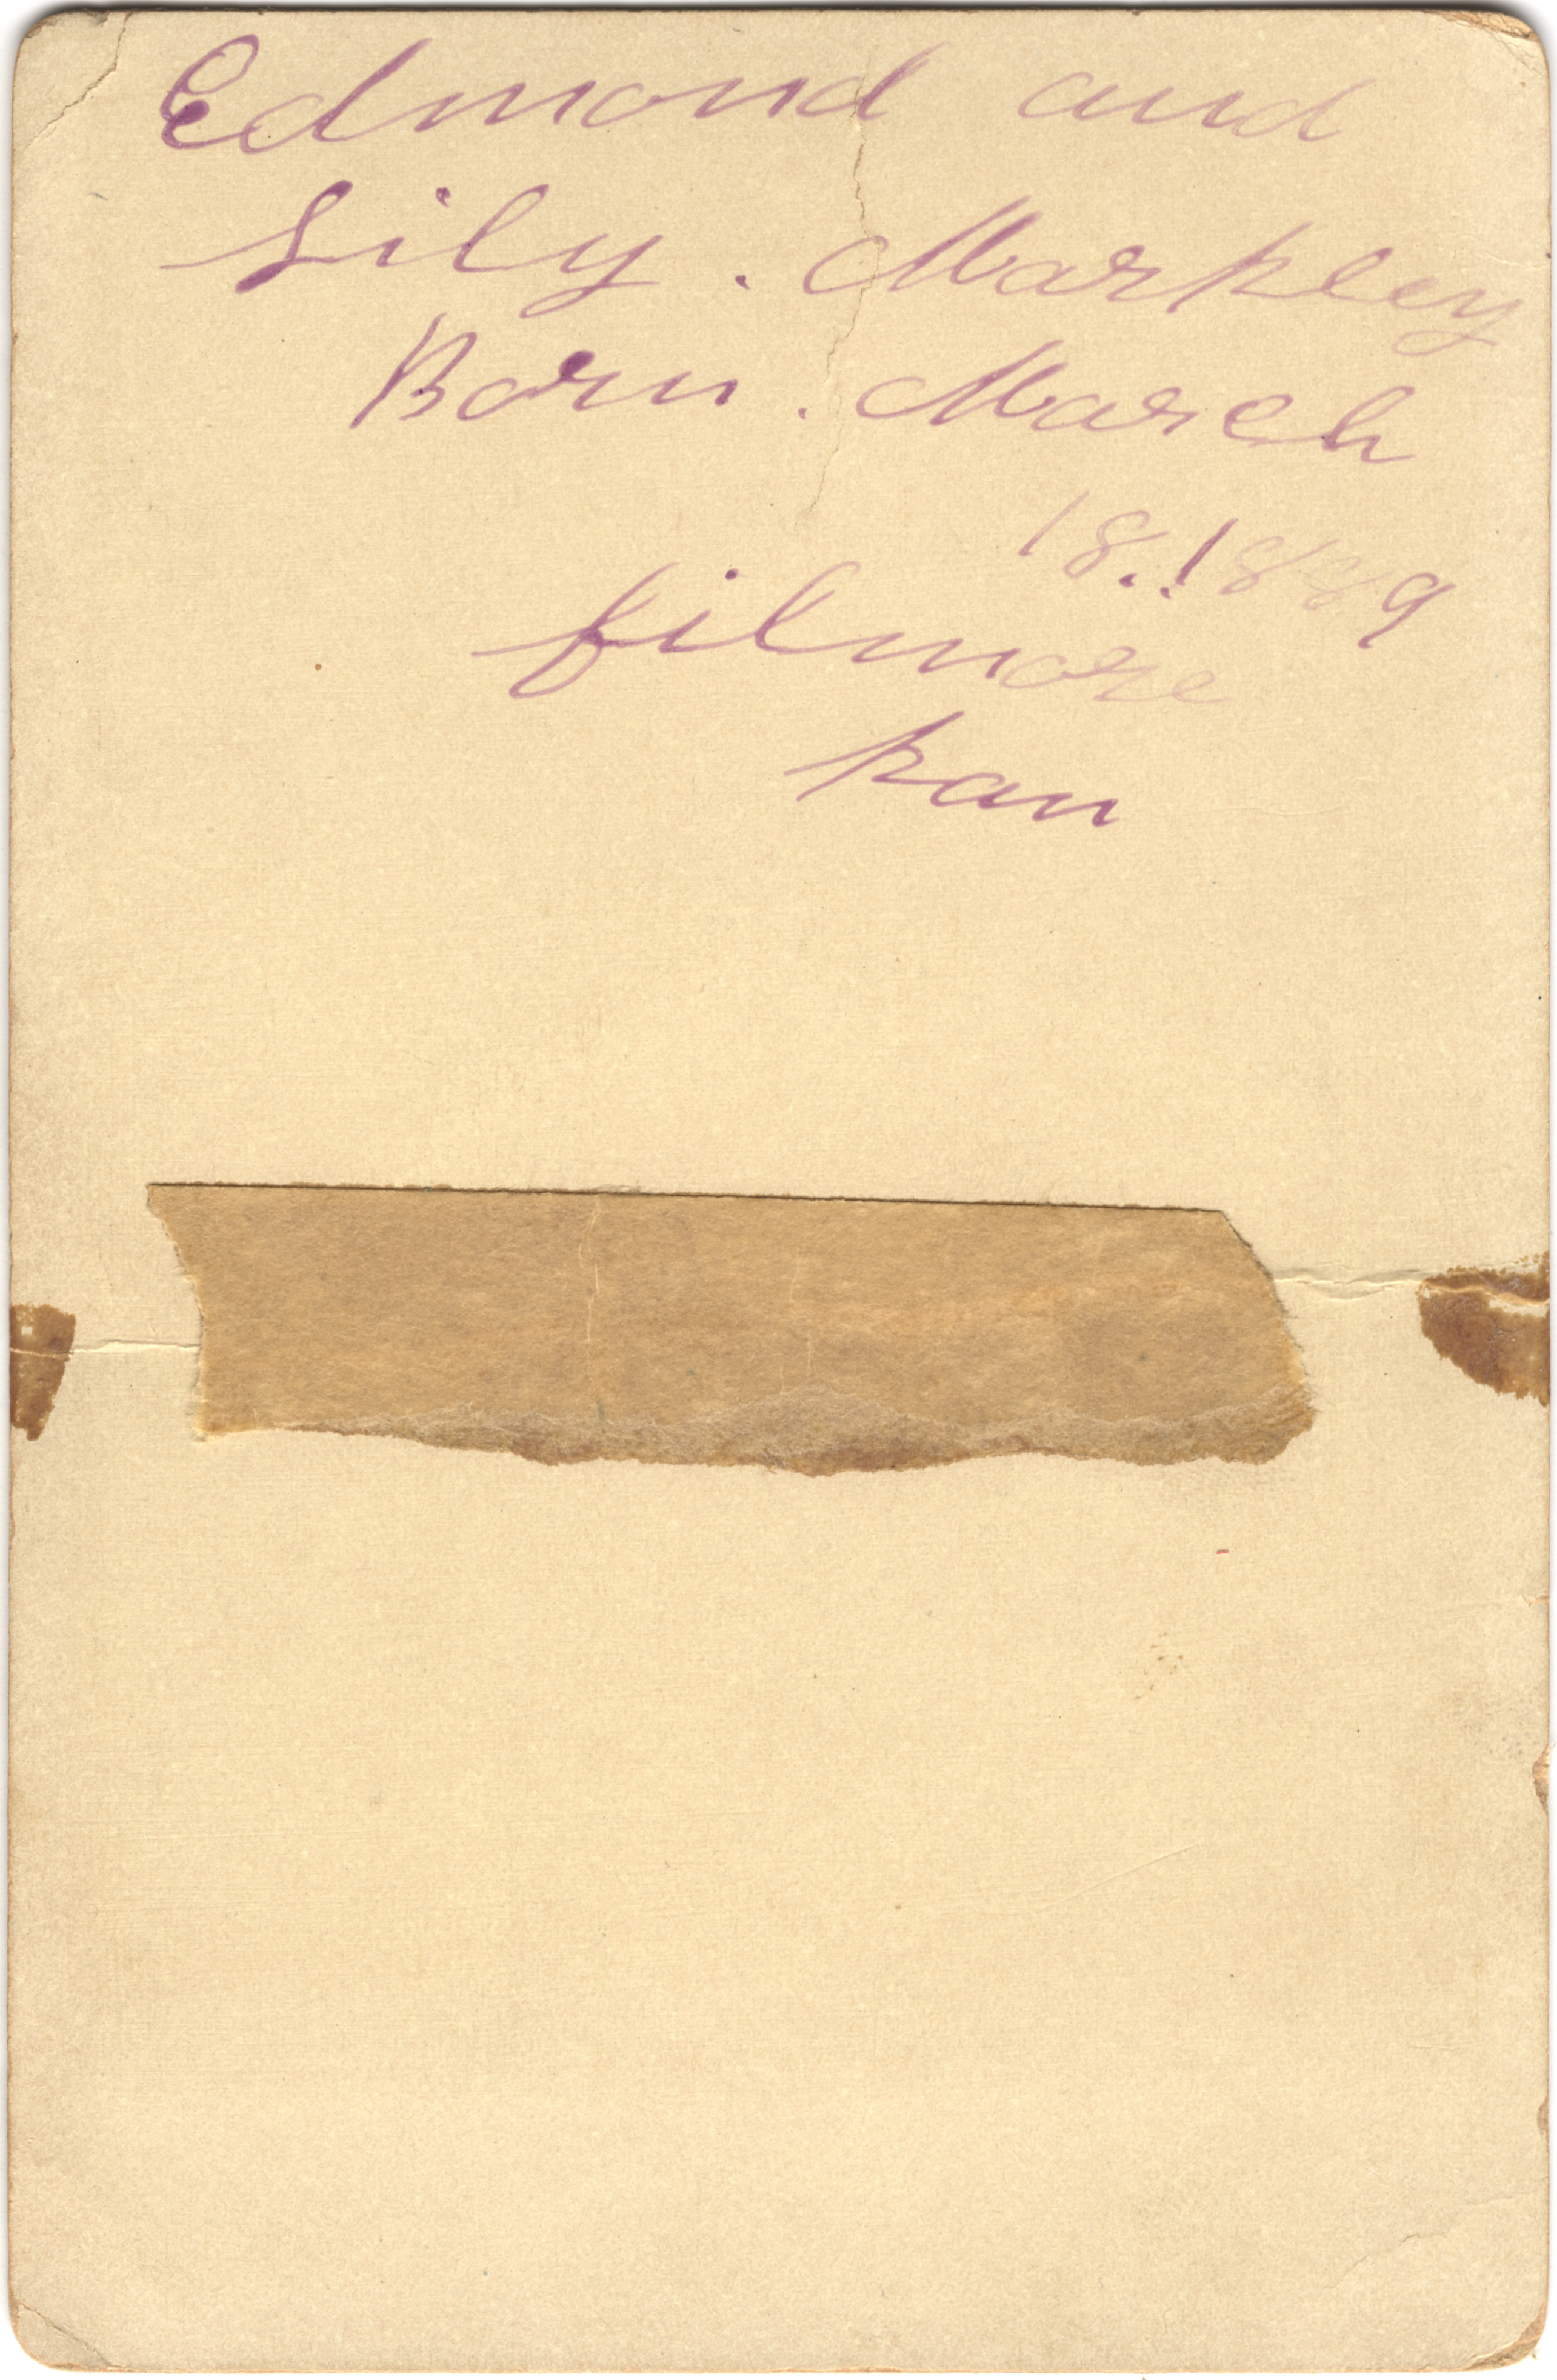 Edmond and
Lily. Markley
Born. March
18.. 1889
filmore
kan